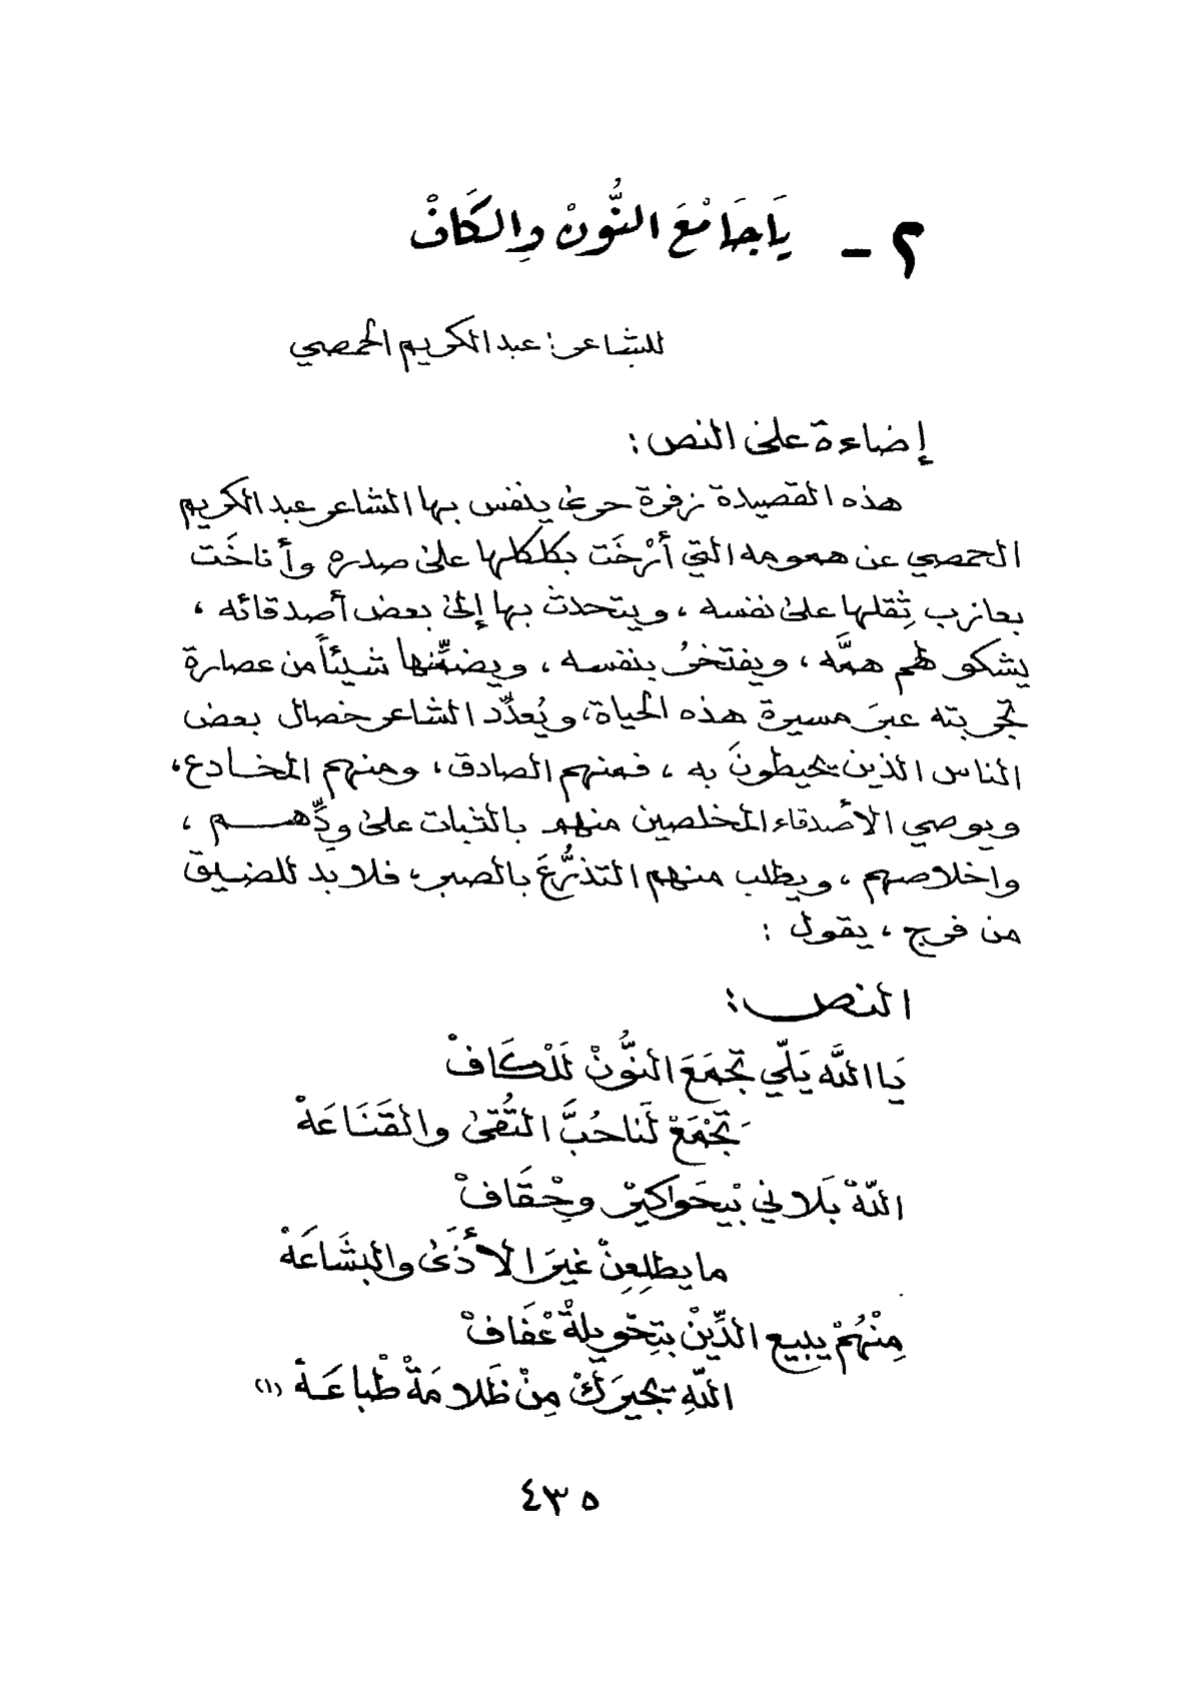 ٢ - يَا جَامْعَ النُّونْ وِالكَافْ
للشاعر: عبد الكريم الحمصي
إضاءة على النص:
هذه القصيدة زفرة حرى ينفس بها الشاعر عبد الكريم
الحمصي عن همومه التي أرْخَت بكلكلها على صدره وأناخَت
بعازب ثِقلها على نفسه، ويتحدث بها إلى بعض أصدقائه،
يشكو لهم همَّه، ويفتخرُ بنفسه، ويضمِّنها شيئاً من عصارة
تجربته عبرَ مسيرة هذه الحياة، ويُعدِّد الشاعر خصال بعض
الناس الذين يحيطونَ به، فمنهم الصادق، ومنهم المخادع،
ويوصي الأصدقاء المخلصين منهم بالثبات على ودِّهم،
واخلاصهم، ويطلب منهم التذرُّعَ بالصبر، فلا بد للضيق
من فرج، يقول:
النص:
يَا اللَّه يَلّي تجمَعَ النُّونْ لَلْكَافْ
تَجْمَعْ لَنا حُبَّ التُقى والقَنَاعَهْ
اللّهْ بَلاني بْيحَواكيرْ وحْقَافْ
ما يطلِعِنْ غيرَ الأذَى والبشَاعَهْ
مِنْهُمْ يبيع الدِّينْ بتِحْويلةْ عْفَافْ
اللّهِ يجيرَكْ مِنْ ظَلامَةْ طْباعَهْ (١)
٤٣٥